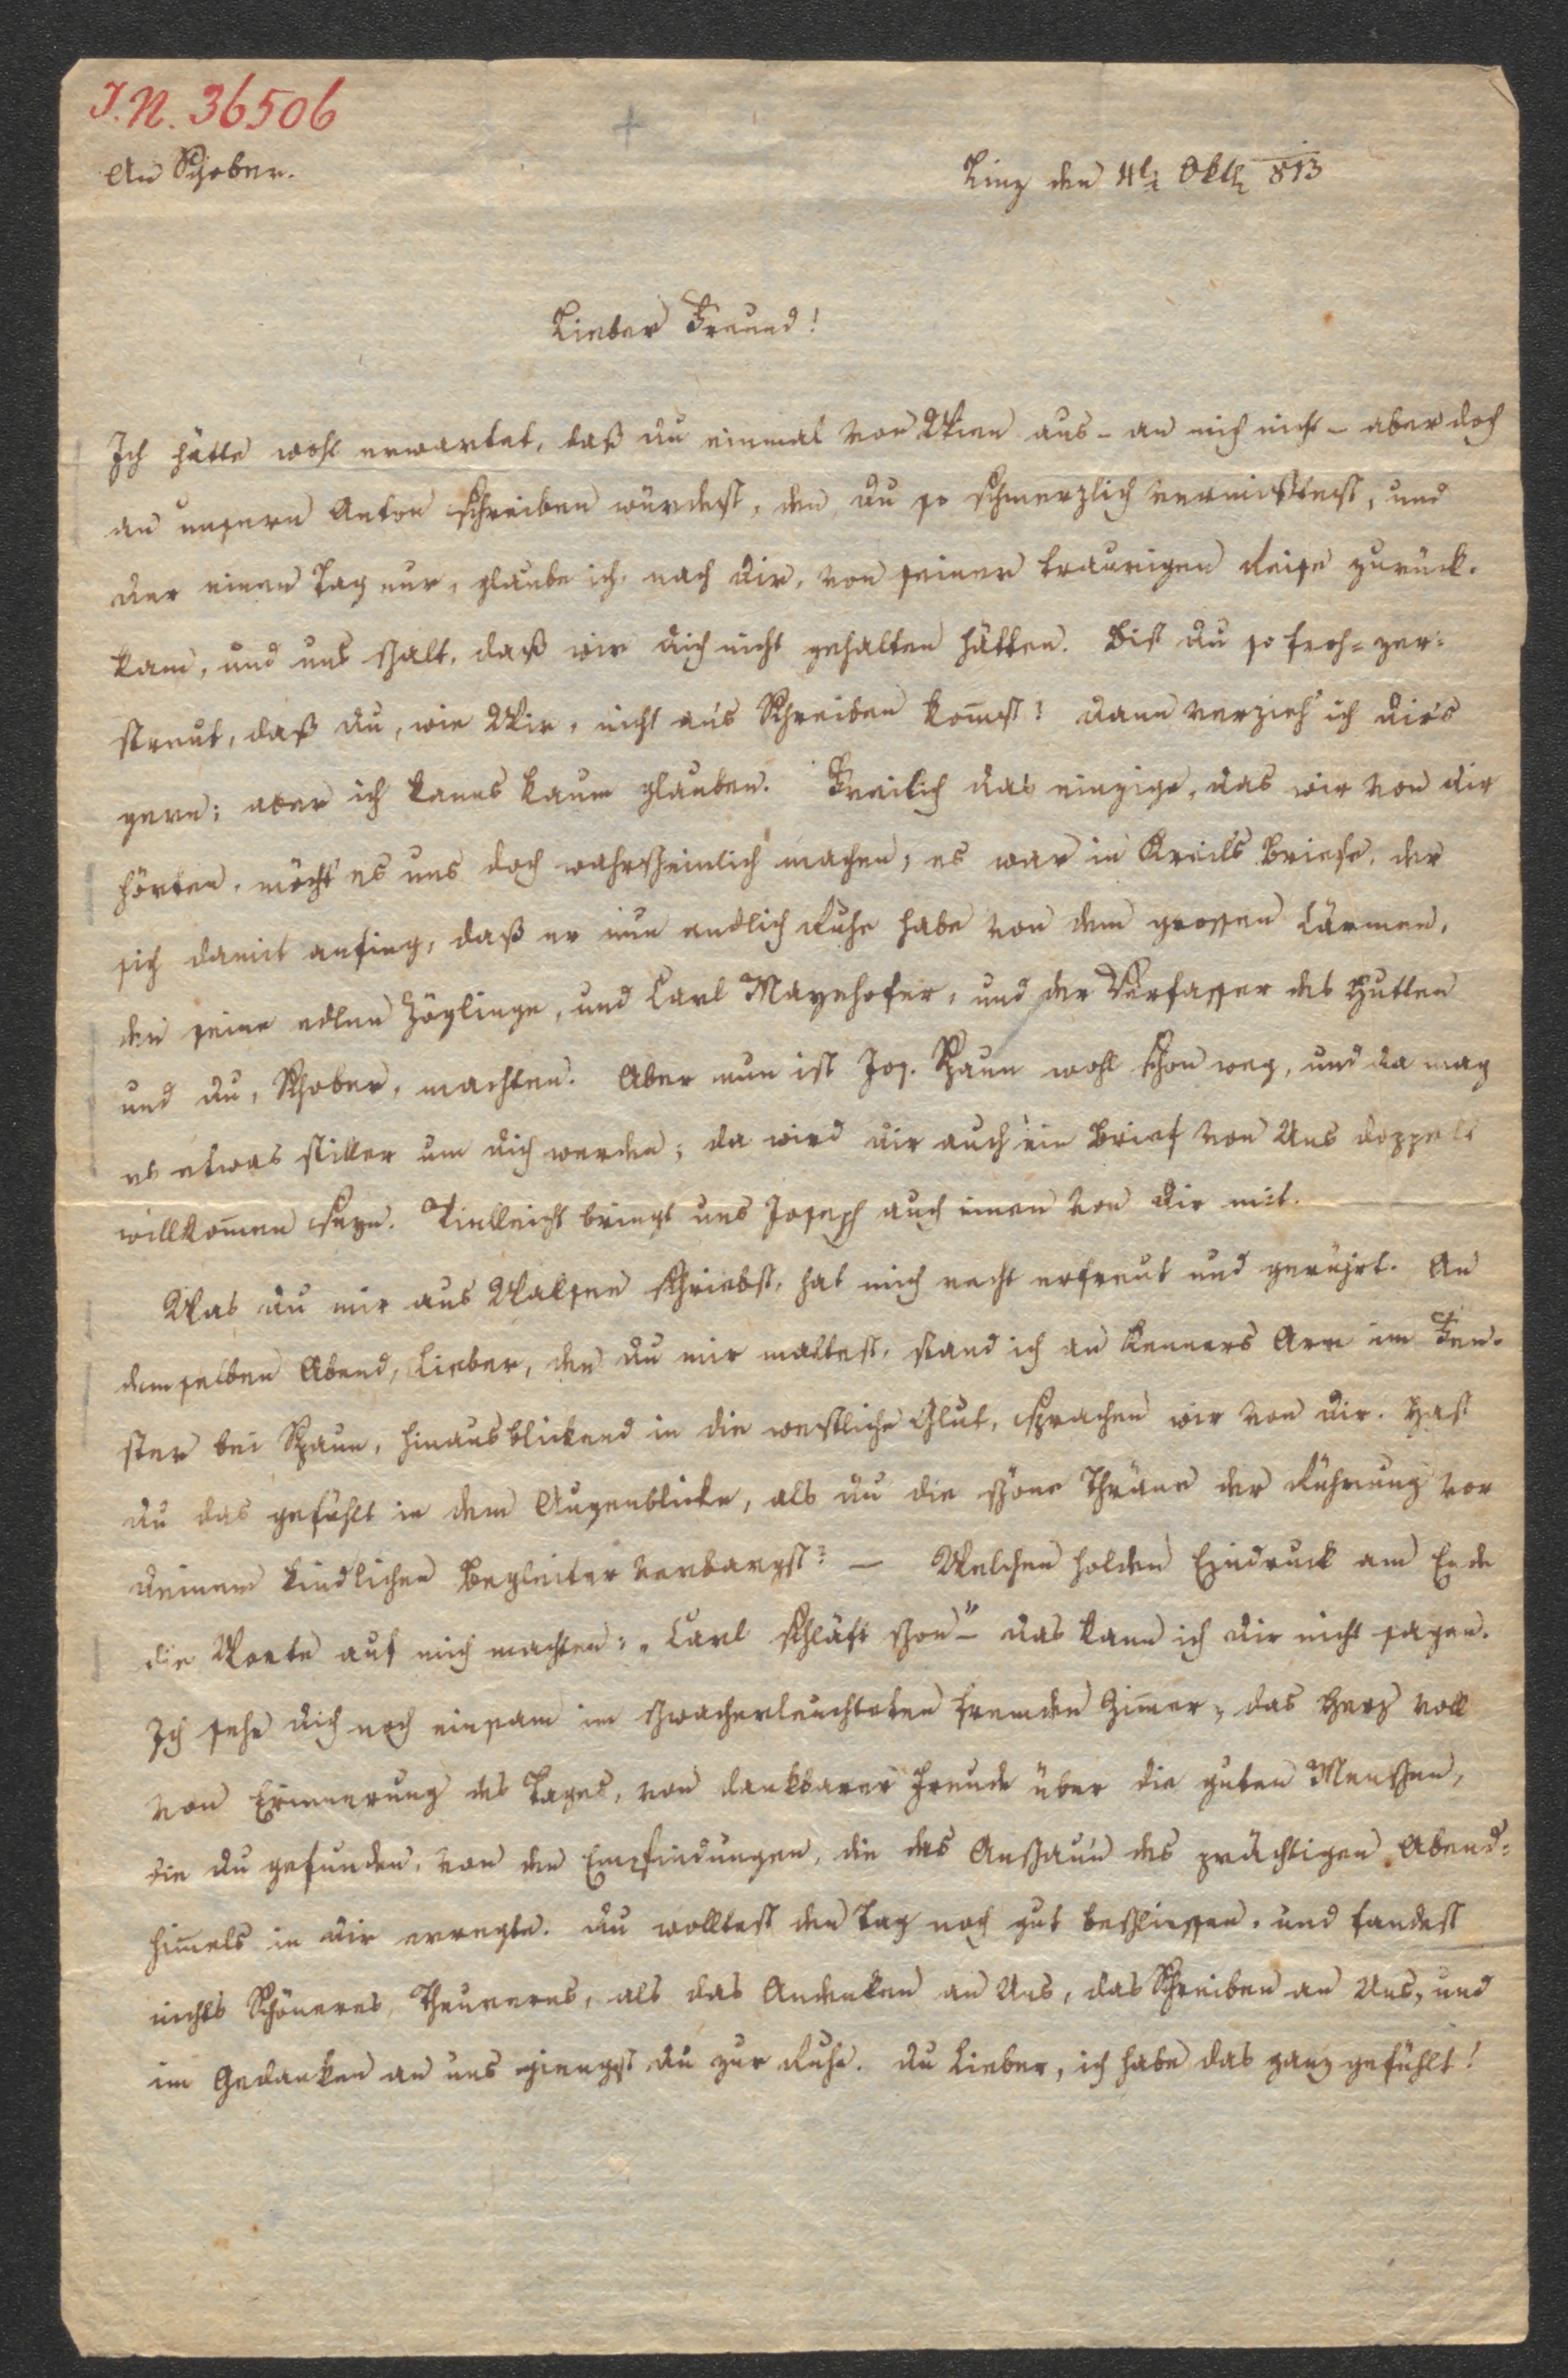 I.N. 36506
An Schober.
Linz den 4t Oktb 813
Lieber Freund!
Ich hätte wohl erwartet, daß du einmal von Wien aus - an mich nicht - aber doch
an unsern Anton schreiben würdest, den du so schmerzlich vermißtest, und
der einen Tag nur, glaube ich, nach dir, von seiner traurigen Reise zurück-
kam, und uns schalt, daß wir dich nicht gehalten hätten. Bist du so froh-zer-
streut, daß du, wie Wir, nicht an's Schreiben kom̅st? dann verzieh' ich dir's
gern; aber ich kanns kaum glauben. Freilich das einzige, das wir von dir
hörten, möcht' es uns doch wahrscheinlich machen; es war in Kreil's Briefe, der
sich damit anfing, daß er nun endlich Ruhe habe von dem grossen Lärmen,
den seine edlen Zöglinge, und Carl Mayrhofer, und der Verfasser des Hutten
und du, Schober, machten. Aber nun ist Jos. Spaun wohl schon weg, und da mag
es etwas stiller um dich werden; da wird dir auch ein Brief von Uns doppelt
willkom̅en seyn. Vielleicht bringt uns Joseph auch einen von dir mit.
Was du mir aus Walsee schriebst, hat mich recht erfreut und gerührt. An
demselben Abend, Lieber, den du mir maltest, stand ich an Kenners Arm im Fen-
ster bei Spaun, hinausblickend in die westliche Glut, sprachen wir von dir. Hast
du das gefühlt in dem Augenblicke, als du die schöne Thräne der Rührung vor
deinem kindlichen Begleiter verbargst? — Welchen holden Eindruck am Ende
die Worte auf mich machten: „Carl schläft schon" - das kann ich dir nicht sagen.
Ich sehe dich noch einsam im schwacherleuchteten fremden Zim̅er, das Herz voll
von Erinnerung des Tages, von dankbarer Freude über die guten Menschen,
die du gefunden, von den Empfindungen, die das Anschau'n des prächtigen Abend-
him̅els in dir erregte. du wolltest den Tag noch gut beschliessen, und fandest
nichts Schöneres, Theureres, als das Andenken an Uns, das Schreiben an Uns, und
im Gedanken an uns giengst du zur Ruhe. du Lieber, ich habe das ganz gefühlt!